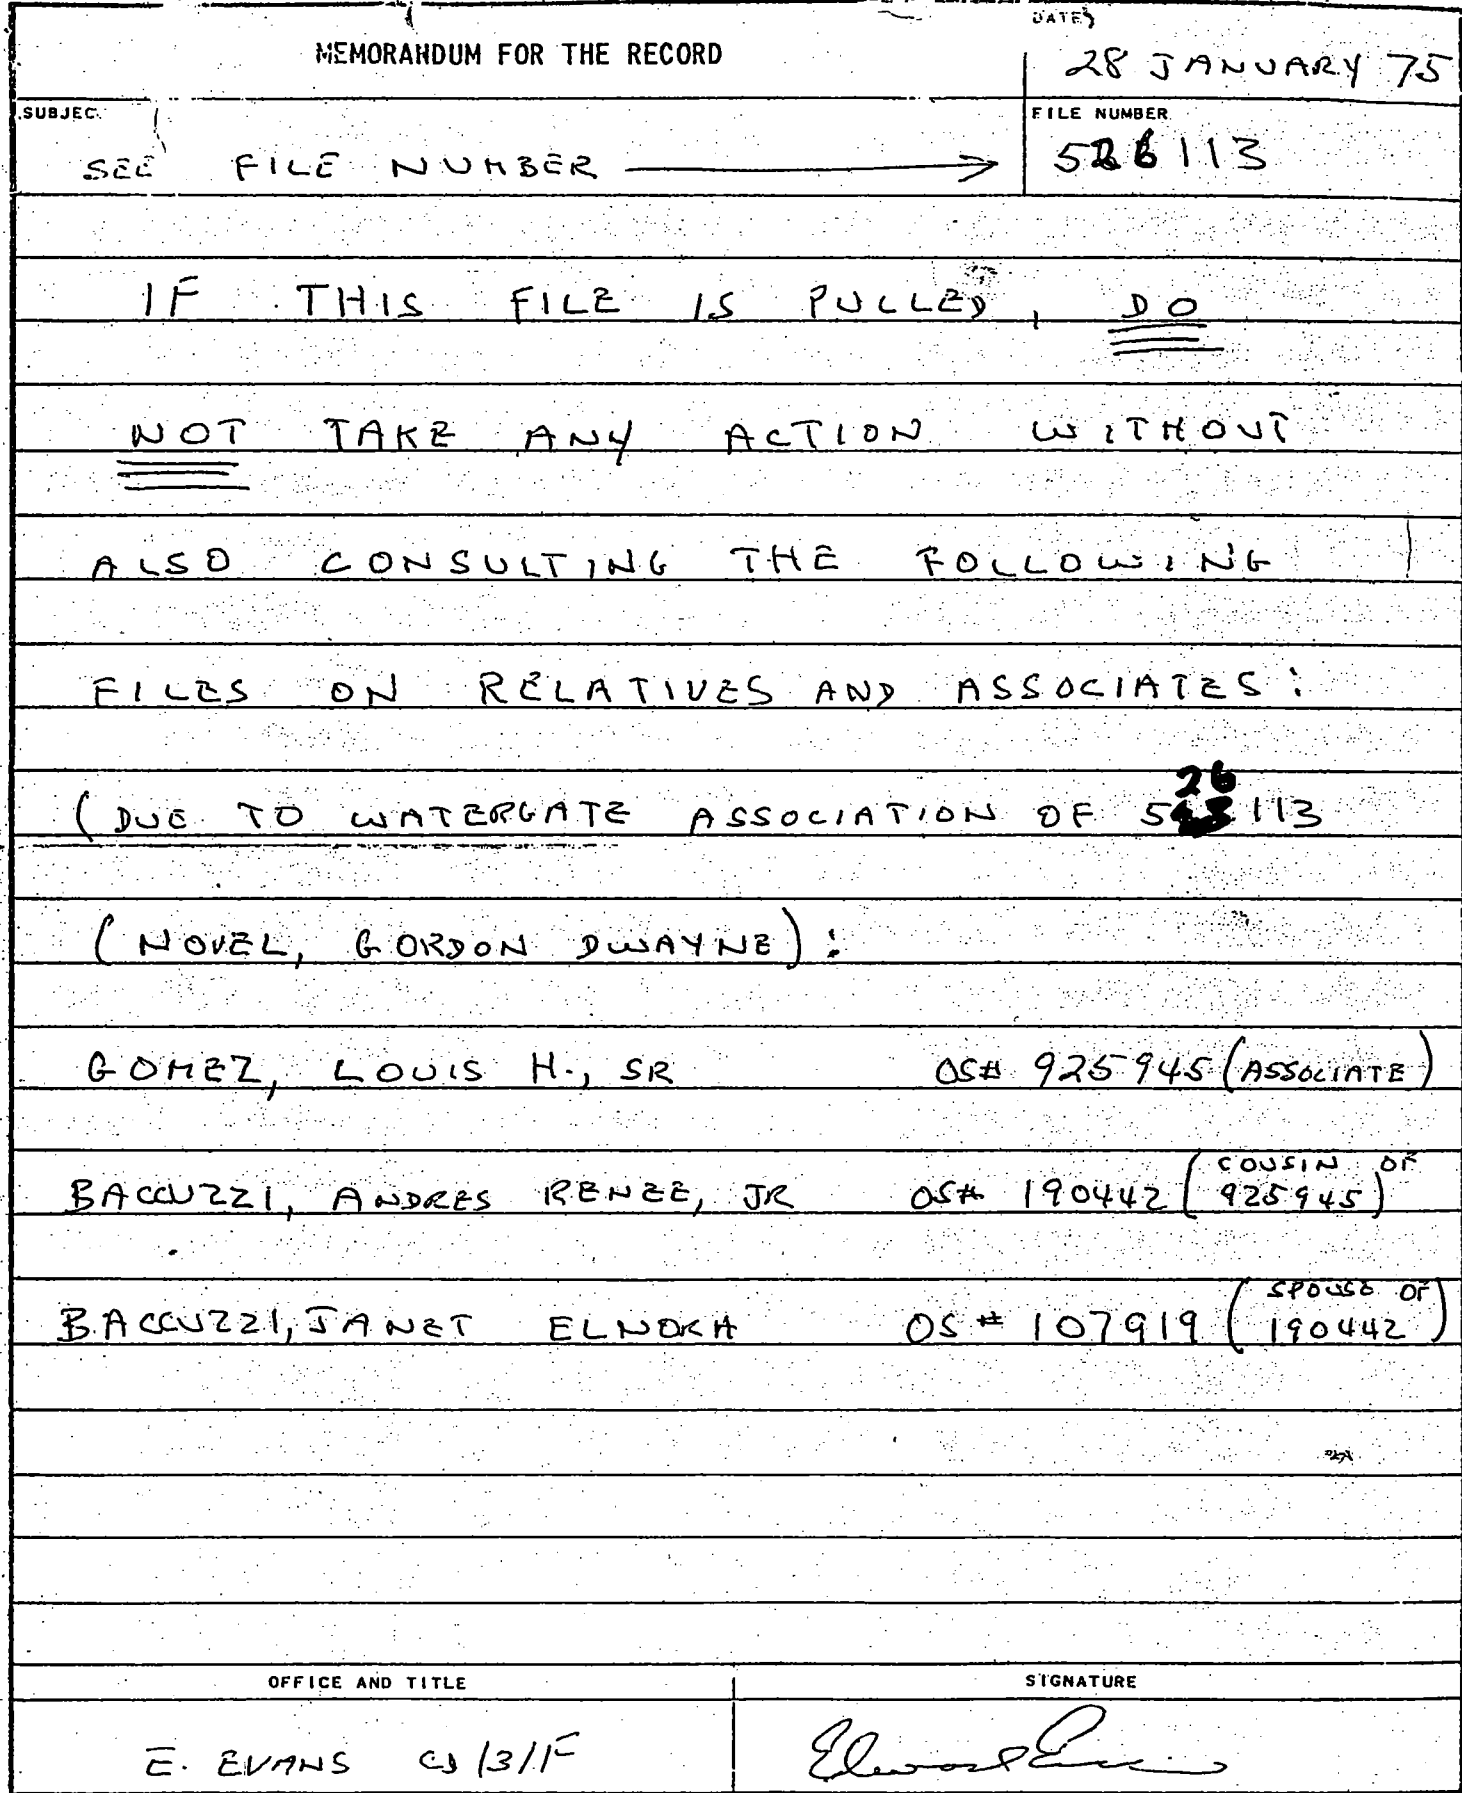 DATE
MEMORANDUM FOR THE RECORD
28 JANUARY 75
SUBJEC
FILE NUMBER
SEE FILE NUMBER
526113
IF THIS FILE IS PULLED, DO
NOT TAKE ANY ACTION WITHOUT
ALSO CONSULTING THE FOLLOWING
FILES ON RELATIVES AND ASSOCIATES:
26
(DUE TO WATERGATE ASSOCIATION OF 5 113
(NOVEL, GORDON DWAYNE):
GOMEZ, LOUIS H., SR OS# 925945 (ASSOCIATE)
BACCUZZI, ANDRES RENEE, JR OS# 190442 (COUSIN OF
925945)
BACCUZZI, JANET ELNORA OS# 107919 (SPOUSE OF
190442)
OFFICE AND TITLE
SIGNATURE
E. EVANS